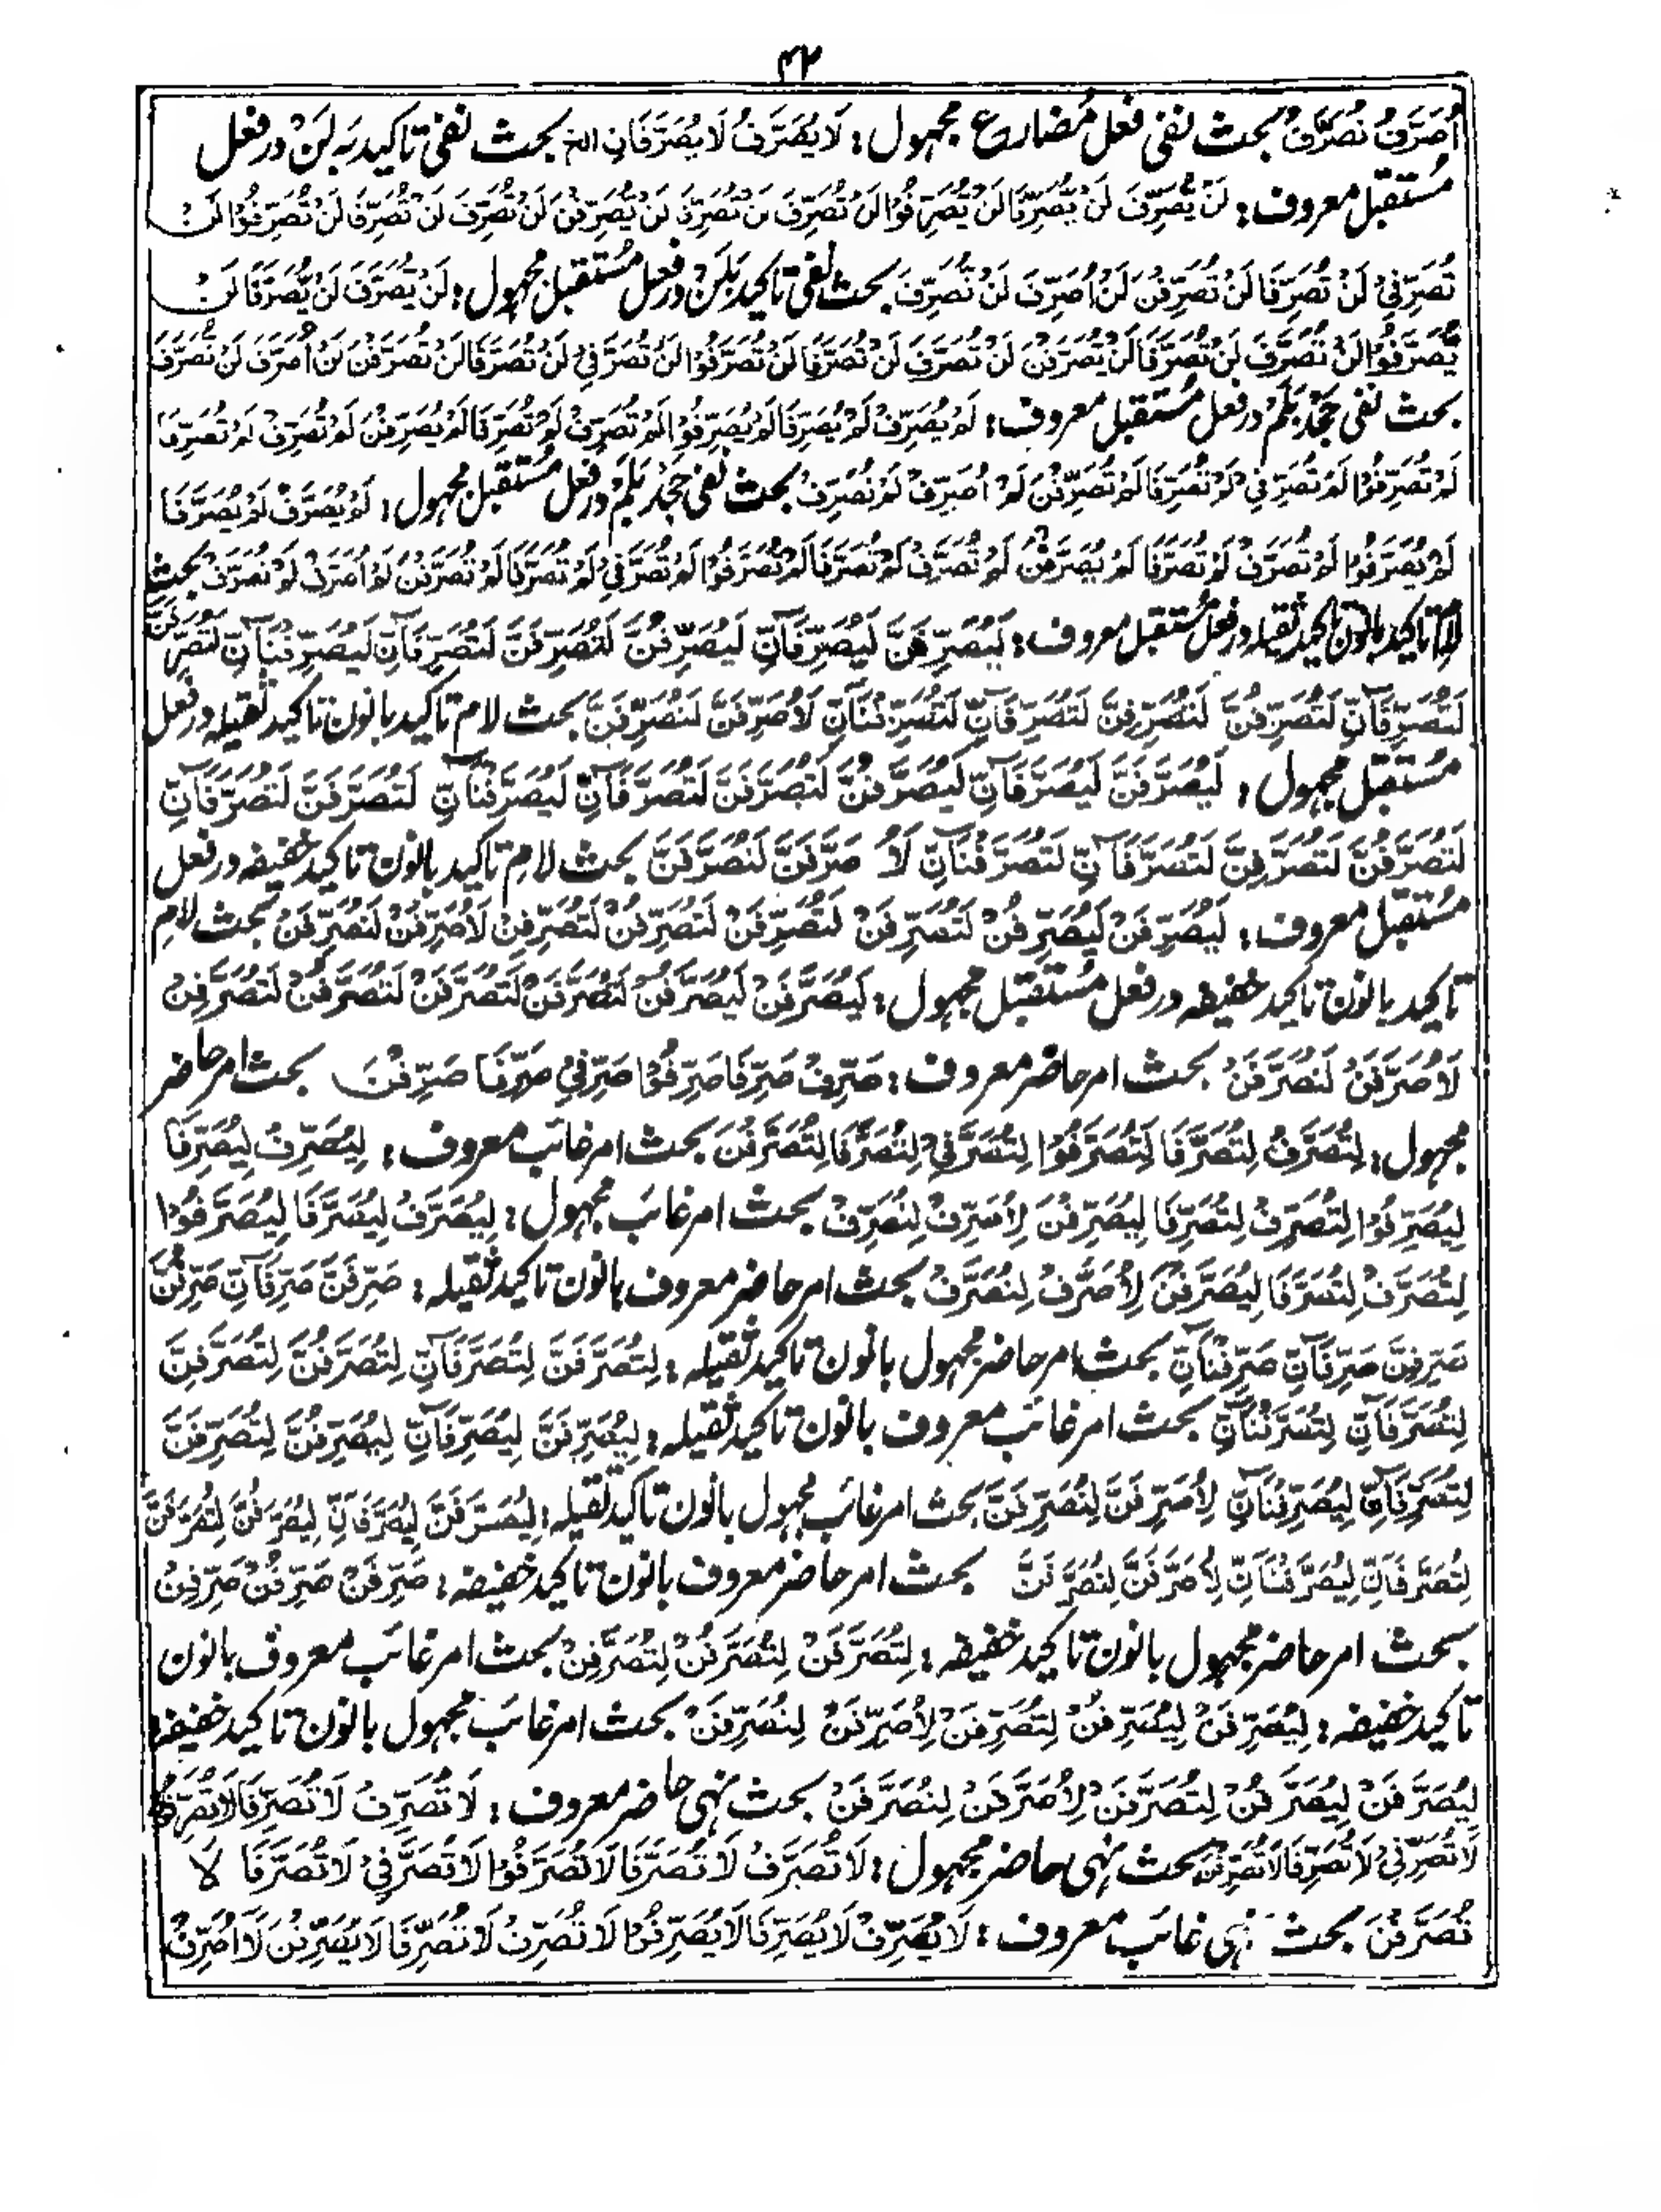 ۴۲
اُصَرَّفُ نُصَرَّفُ بحث نفی فعل مُضارع مجہول: لَا یُصَرَّفُ لَا یُصَرَّفَانِ الخ بحث نفی تاکید بَہ لَنْ در فعل
مُستقبل معروف: لَنْ یُّصَرِّفَ لَنْ یُّصَرِّفَا لَنْ یُّصَرِّفُوْا لَنْ تُصَرِّفَ لَنْ تُصَرِّفَا لَنْ یُّصَرِّفْنَ لَنْ تُصَرِّفَ لَنْ تُصَرِّفَا لَنْ تُصَرِّفُوْا لَنْ
تُصَرِّفِیْ لَنْ تُصَرِّفَا لَنْ تُصَرِّفْنَ لَنْ اُصَرِّفَ لَنْ نُّصَرِّفَ بحث نفی تاکید بَلَنْ در فعل مُستقبل مجہول: لَنْ یُّصَرَّفَ لَنْ یُّصَرَّفَا لَنْ
یُّصَرَّفُوْا لَنْ تُصَرَّفَ لَنْ تُصَرَّفَا لَنْ یُّصَرَّفْنَ لَنْ تُصَرَّفَ لَنْ تُصَرَّفَا لَنْ تُصَرَّفُوْا لَنْ تُصَرَّفِیْ لَنْ تُصَرَّفَا لَنْ تُصَرَّفْنَ لَنْ اُصَرَّفَ لَنْ نُّصَرَّفَ
بحث نفی جحد بَلَمْ در فعل مُستقبل معروف: لَمْ یُصَرِّفْ لَمْ یُصَرِّفَا لَمْ یُصَرِّفُوْا لَمْ تُصَرِّفْ لَمْ تُصَرِّفَا لَمْ یُصَرِّفْنَ لَمْ تُصَرِّفْ لَمْ تُصَرِّفَا
لَمْ تُصَرِّفُوْا لَمْ تُصَرِّفِیْ لَمْ تُصَرِّفَا لَمْ تُصَرِّفْنَ لَمْ اُصَرِّفْ لَمْ نُصَرِّفْ بحث نفی جحد بَلَمْ در فعل مُستقبل مجہول: لَمْ یُصَرَّفْ لَمْ یُصَرَّفَا
لَمْ یُصَرَّفُوْا لَمْ تُصَرَّفْ لَمْ تُصَرَّفَا لَمْ یُصَرَّفْنَ لَمْ تُصَرَّفْ لَمْ تُصَرَّفَا لَمْ تُصَرَّفُوْا لَمْ تُصَرَّفِیْ لَمْ تُصَرَّفَا لَمْ تُصَرَّفْنَ لَمْ اُصَرَّفْ لَمْ نُصَرَّفْ بحث
لام تاکید بانون تاکید ثقیلہ در فعل مُستقبل معروف: لَیُصَرِّفَنَّ لَیُصَرِّفَآنِّ لَیُصَرِّفُنَّ لَتُصَرِّفَنَّ لَتُصَرِّفَآنِّ لَیُصَرِّفْنَآنِّ لَتُصَرِّفَنَّ
لَتُصَرِّفَآنِّ لَتُصَرِّفُنَّ لَتُصَرِّفِنَّ لَتُصَرِّفَآنِّ لَتُصَرِّفْنَآنِّ لَاُصَرِّفَنَّ لَنُصَرِّفَنَّ بحث لام تاکید بانون تاکید ثقیلہ در فعل
مُستقبل مجہول: لَیُصَرَّفَنَّ لَیُصَرَّفَآنِّ لَیُصَرَّفُنَّ لَتُصَرَّفَنَّ لَتُصَرَّفَآنِّ لَیُصَرَّفْنَآنِّ لَتُصَرَّفَنَّ لَتُصَرَّفَآنِّ
لَتُصَرَّفُنَّ لَتُصَرَّفِنَّ لَتُصَرَّفَآنِّ لَتُصَرَّفْنَآنِّ لَاُ صَرَّفَنَّ لَنُصَرَّفَنَّ بحث لامِ تاکید بانون تاکید خفیفہ در فعل
مُستقبل معروف: لَیُصَرِّفَنْ لَیُصَرِّفُنْ لَتُصَرِّفَنْ لَتُصَرِّفَنْ لَتُصَرِّفُنْ لَتُصَرِّفِنْ لَاُصَرِّفَنْ لَنُصَرِّفَنْ بحث لامِ
تاکید بانون تاکید خفیفہ در فعل مُستقبل مجہول: لَیُصَرَّفَنْ لَیُصَرَّفُنْ لَتُصَرَّفَنْ لَتُصَرَّفَنْ لَتُصَرَّفُنْ لَتُصَرَّفِنْ
لَاُصَرَّفَنْ لَنُصَرَّفَنْ بحث امر حاضر معروف: صَرِّفْ صَرِّفَا صَرِّفُوْا صَرِّفِیْ صَرِّفَا صَرِّفْنَ بحث امر حاضر
مجہول: لِتُصَرَّفْ لِتُصَرَّفَا لِتُصَرَّفُوْا لِتُصَرَّفِیْ لِتُصَرَّفَا لِتُصَرَّفْنَ بحث امر غائب معروف: لِیُصَرِّفْ لِیُصَرِّفَا
لِیُصَرِّفُوْا لِتُصَرِّفْ لِتُصَرِّفَا لِیُصَرِّفْنَ لِاُصَرِّفْ لِنُصَرِّفْ بحث امر غائب مجہول: لِیُصَرَّفْ لِیُصَرَّفَا لِیُصَرَّفُوْا
لِتُصَرَّفْ لِتُصَرَّفَا لِیُصَرَّفْنَ لِاُصَرَّفْ لِنُصَرَّفْ بحث امر حاضر معروف بانون تاکید ثقیلہ: صَرِّفَنَّ صَرِّفَآنِّ صَرِّفُنَّ
صَرِّفِنَّ صَرِّفَآنِّ صَرِّفْنَآنِّ بحث امر حاضر مجہول بانون تاکید ثقیلہ: لِتُصَرَّفَنَّ لِتُصَرَّفَآنِّ لِتُصَرَّفُنَّ لِتُصَرَّفِنَّ
لِتُصَرَّفَآنِّ لِتُصَرَّفْنَآنِّ بحث امر غائب معروف بانون تاکید ثقیلہ: لِیُصَرِّفَنَّ لِیُصَرِّفَآنِّ لِیُصَرِّفُنَّ لِتُصَرِّفَنَّ
لِتُصَرِّفَآنِّ لِیُصَرِّفْنَآنِّ لِاُصَرِّفَنَّ لِنُصَرِّفَنَّ بحث امر غائب مجہول بانون تاکید ثقیلہ: لِیُصَرَّفَنَّ لِیُصَرَّفَآنِّ لِیُصَرَّفُنَّ لِتُصَرَّفَنَّ
لِتُصَرَّفَآنِّ لِیُصَرَّفْنَآنِّ لِاُصَرَّفَنَّ لِنُصَرَّفَنَّ بحث امر حاضر معروف بانون تاکید خفیفہ: صَرِّفَنْ صَرِّفُنْ صَرِّفِنْ
بحث امر حاضر مجہول بانون تاکید خفیفہ: لِتُصَرَّفَنْ لِتُصَرَّفُنْ لِتُصَرَّفِنْ بحث امر غائب معروف بانون
تاکید خفیفہ: لِیُصَرِّفَنْ لِیُصَرِّفُنْ لِتُصَرِّفَنْ لِاُصَرِّفَنْ لِنُصَرِّفَنْ بحث امر غائب مجہول بانون تاکید خفیفہ:
لِیُصَرَّفَنْ لِیُصَرَّفُنْ لِتُصَرَّفَنْ لِاُصَرَّفَنْ لِنُصَرَّفَنْ بحث نہی حاضر معروف: لَا تُصَرِّفْ لَا تُصَرِّفَا لَا تُصَرِّفُوْا
لَا تُصَرِّفِیْ لَا تُصَرِّفَا لَا تُصَرِّفْنَ بحث نہی حاضر مجہول: لَا تُصَرَّفْ لَا تُصَرَّفَا لَا تُصَرَّفُوْا لَا تُصَرَّفِیْ لَا تُصَرَّفَا لَا
تُصَرَّفْنَ بحث نہی غائب معروف: لَا یُصَرِّفْ لَا یُصَرِّفَا لَا یُصَرِّفُوْا لَا تُصَرِّفْ لَا تُصَرِّفَا لَا یُصَرِّفْنَ لَا اُصَرِّفْ